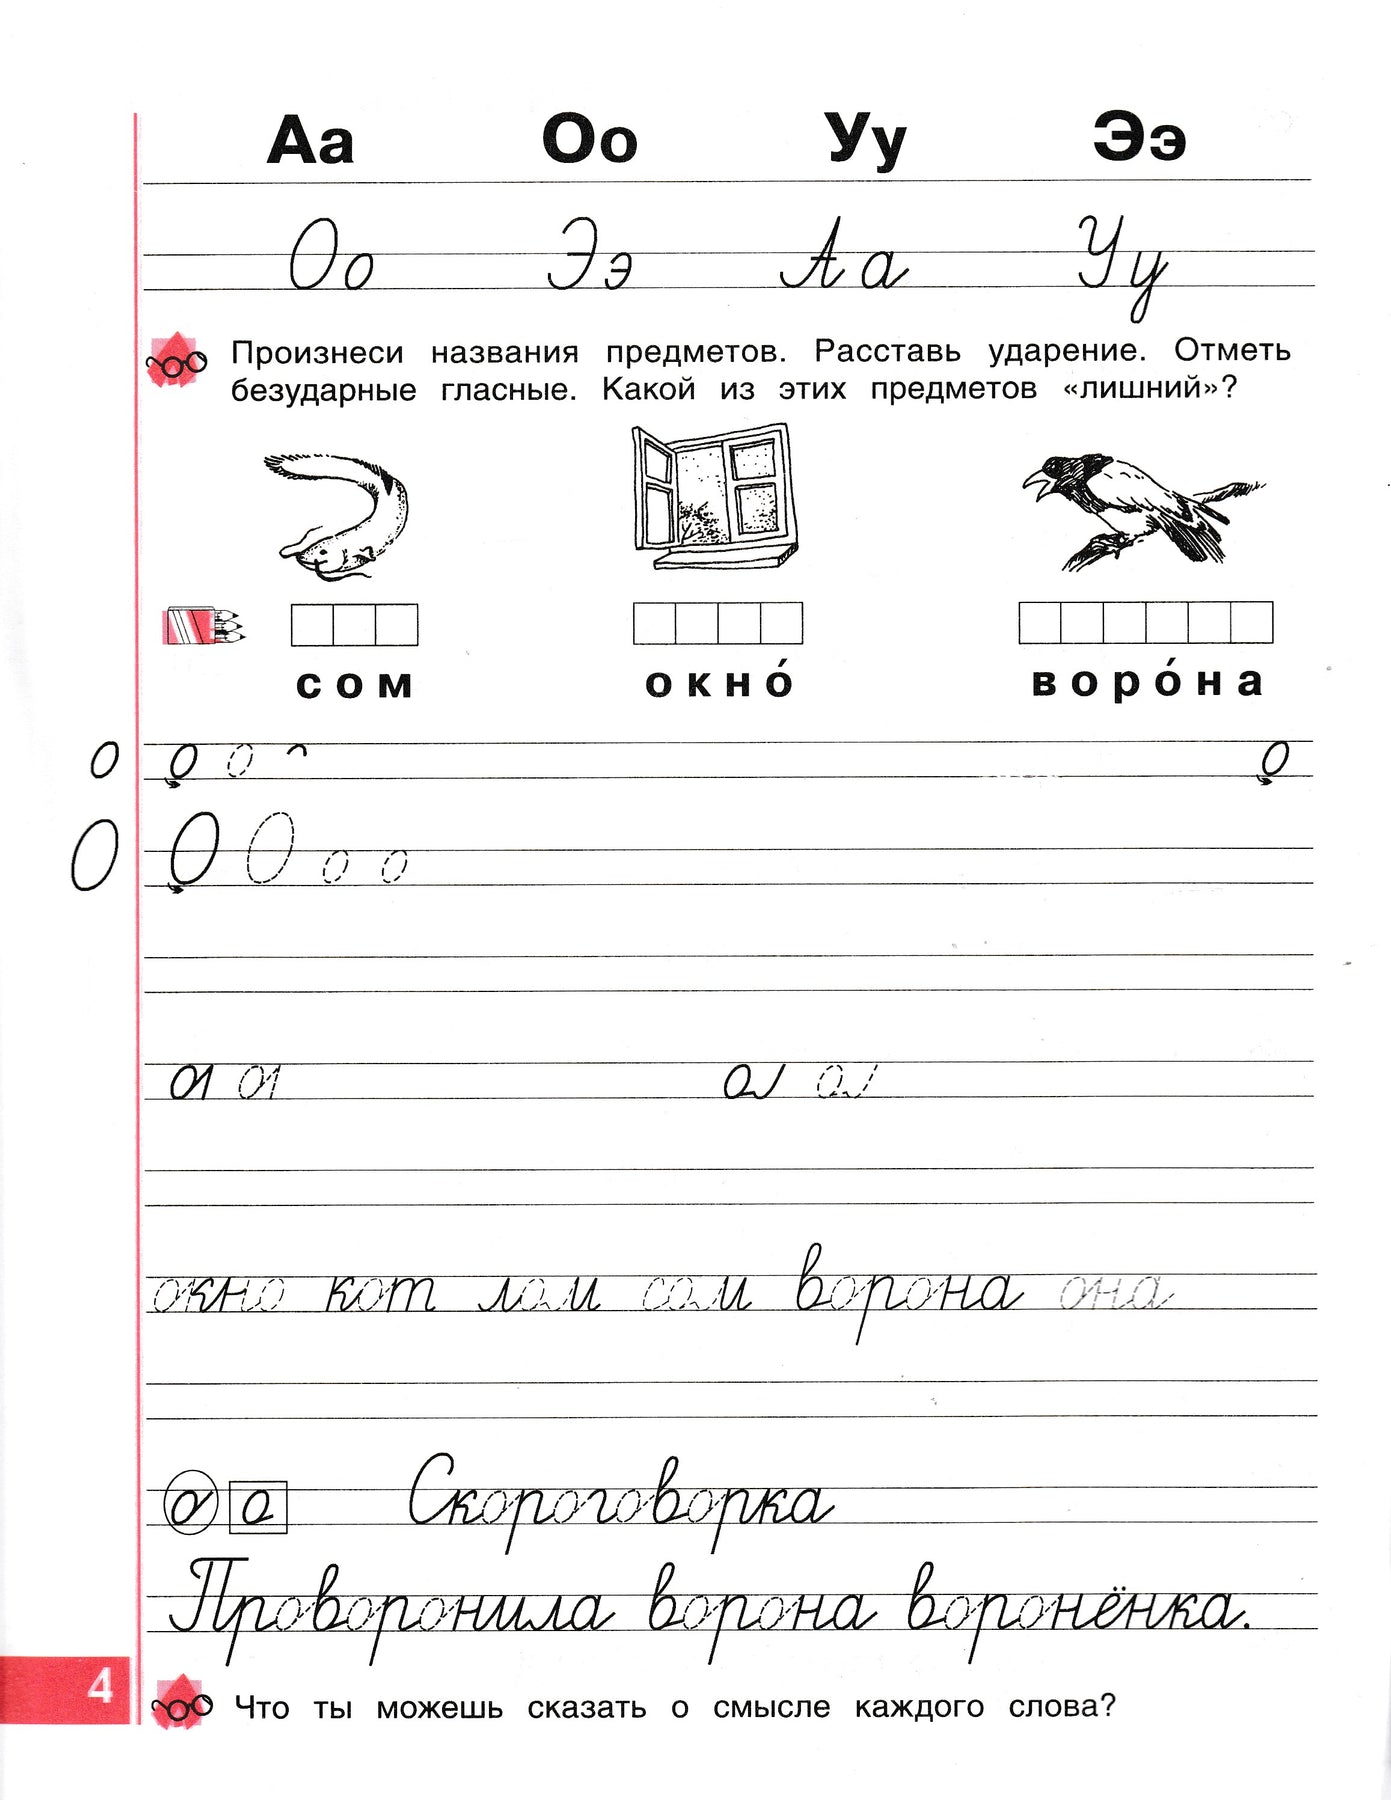 Аа Оо Уу Ээ
Оо Ээ Аа Уу
Произнеси названия предметов. Расставь ударение. Отметь
безударные гласные. Какой из этих предметов «лишний»?
сом окно́ воро́на
о о о о
О О О о о
о о
о о
окно кот лом сом ворона она
о о Скороговорка
Проворонила ворона воронёнка.
4 Что ты можешь сказать о смысле каждого слова?